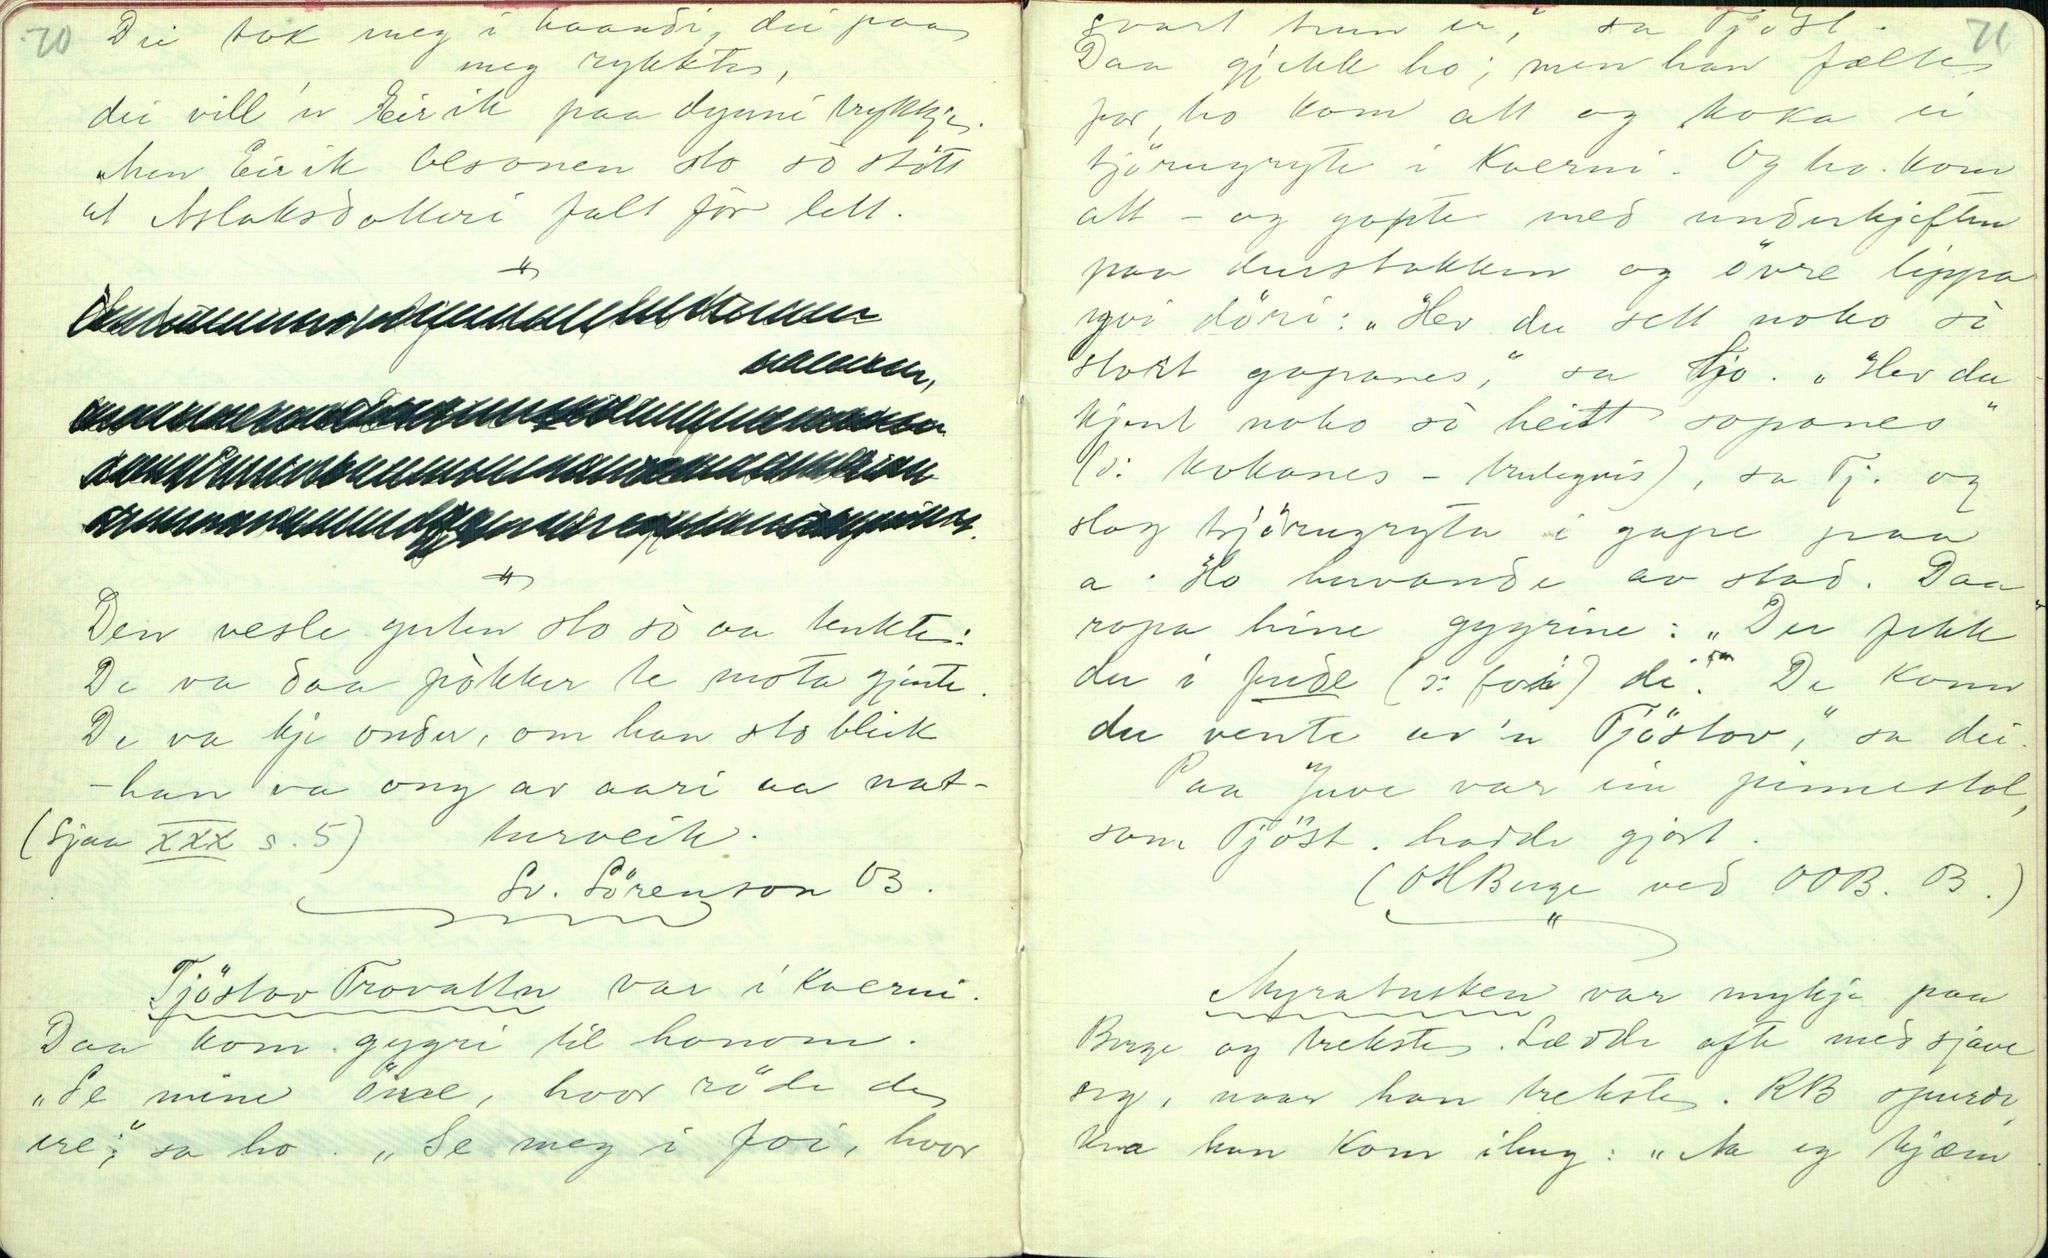 70
Dei tok meg i haandi, dei paa
meg rykkte,
dei vill 'n Eirik paa dynni trykkje.
Men Eirik Olsonen sto so stött
at Aslaksdotteri fall för lett.
"
"
Den vesle guten sto so aa tenkte:
De va daa pokker te mota gjente.
De va kje onder, om han sto bleik
- han va ong av aari aa nat-
(Sjaa XXX s. 5) turveik.
Sv. Sörenson OB.
Tjöstov Trovattn var i kverni.
Daa kom gygri til honom.
"Se mine öine, hvor röde de
ere," sa ho. "Se meg i foi, hvor
71
svart trun er," sa Tjöst.
Daa gjekk ho; men han fælte
for, ho kom att og koka ei
tjörugryte i kverni. Og ho kom
att - og gapte med underkjeften
paa durstokken og övre lippa
yvi döri: "Hev du sett noko so
stort gapanes," sa ho. "Hev du
kjent noko so heitt sopanes"
(ɔ: kokanes - ), sa Tj. og
slog tjörugryta i gape paa
a. Ho av stad. Daa
ropa hine gygrine: "Dei fekk
du i fuide (ɔ: foi) di. De konn
du vente av 'n Tjöstov," sa dei.
Paa Juve var ein pinnestol,
som Tjöst. hadde gjort.
(OHBerge ved OOB. B.)
"
Myrabusken var mykje paa
Berge og trekste. Lædde ofte med sjave
seg, naar han trekste. RB spurde,
kva han kom ihug: "Aa eg kjæm